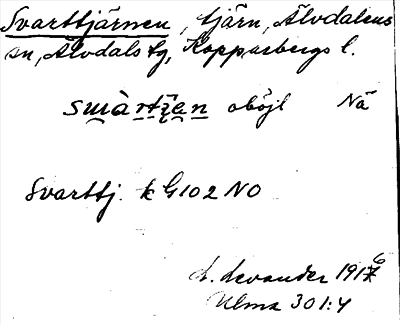 Svarttjärnen, tjärn, Älvdalens
sn, Älvdals tg, Kopparbergs l.
swàrtǯen oböjl Nä
Svarttj. k G102 NO
L. Levander 1916
Ulma 301:4